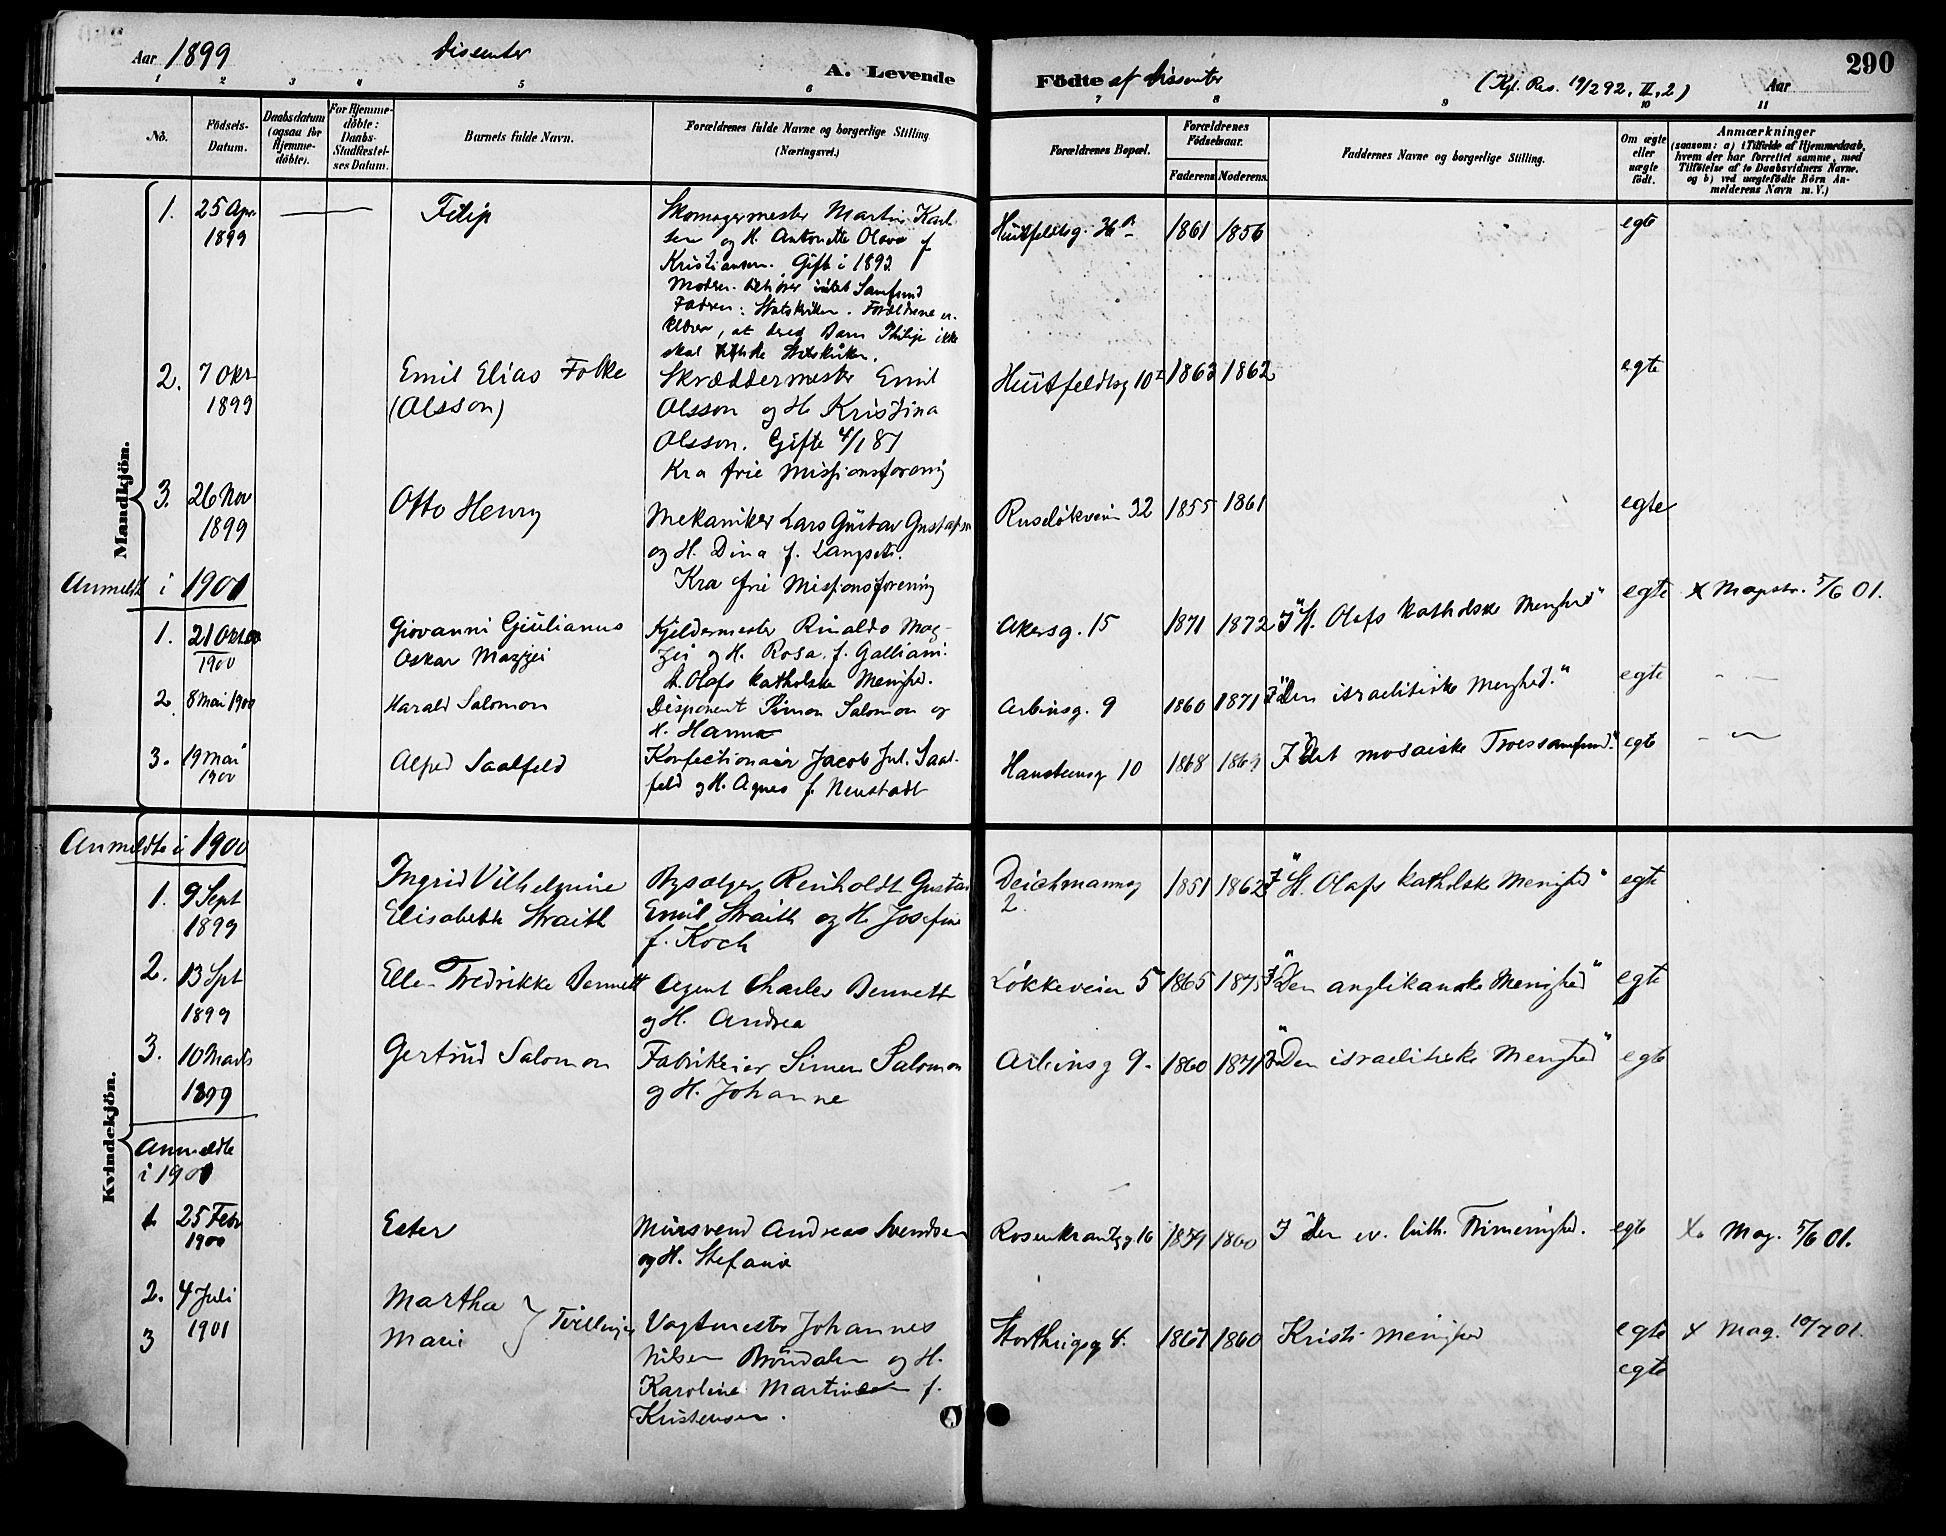 Aar 1899 Dissenter A. Levende Födte af Dissenter (Kgl. Res. 19/2 92, II, 2) Aar 290
1 2 3 4 5 6 7 8 9 10 11
No. Födsels-Datum. Daabsdatum (ogsaa for Hjemme-döbte). For Hjemme-döbte: Daabs-Stadfæstel-ses Datum. Barnets fulde Navn. Forældrenes fulde Navne og borgerlige Stilling. (Næringsvei.) Forældrenes Bopæl. Forældrenes Födselsaar. Faderens. Moderens. Faddernes Navne og borgerlige Stilling. Om ægte eller uægte födt. Anmærkninger (saasom: a) i Tilfælde af Hjemmedaab, hvem der har forrettet samme, med Tilföielse af to Daabsvidners Navne, og b) ved uægtefödte Börn An-melderens Navn m. V.)
Mandkjön.
1. 25 Apr 1899 Filip Skomagermester Martin Karl- Huitfeldtsg. 1861 1856 egte
sen og H. Antonette Olava f
Kristiansen. Gift i 1892
Moderen tilhører Samfund
Faderen: Statskirken. Forældrene er-
klærer, at deres Barn Philip ikke
skal tilhøre Statskirken.
2. 7 Okr 1899 Emil Elias Folke Skræddermester Emil Huitfeldtsg 10 1863 1862 egte
(Olsson) Olsson og H. Kristina
Olsson. Gifte 4/1 87
Kra frie Missionsforening
3. 26 Nov 1899 Otto Henry Mekaniker Lars Gustav Gustafsen Ruseløkveien 32 1855 1861 egte
og H. Dina f. Langseth.
Kra frie Missionsforening
Anmeldt i 1901
1. 21 Oktbr 1900 Giovanni Giulianus Kjeldermester Rinaldo Maz- Akersg. 15 1871 1872 I "St. Olafs katholske Menighed" egte X Magistr. 5/6 01.
Oskar Mazzei zei og H. Rosa f. Galliani.
St. Olafs katholske Menighed.
2. 8 Mai 1900 Harald Salomon Disponent Simon Salomon og Arbinsg. 9 1860 1871 I "den israelitiske Menighed." egte - " -
H. Hanna
3. 19 Mai 1900 Alfred Saalfeld Konfectionair Jacob Jul. Saal- Hansteensg 10 1868 1869 I "det mosaiske Troessamfund." egte - " -
feld og H. Agnes f. Neustadt
Kvindekjön.
Anmeldte i 1900
1. 9 Sept 1899 Ingrid Vilhelmine Bysælger Reinholdt Gustav Deichmannsg 2. 1851 1862 I "St. Olafs katholske Menighed" egte
Elisabeth Straith Emil Straith og H. Josefine
f. Koch
2. 13 Spt 1899 Ellen Fredrikke Bennett Agent Charles Bennett Løkkeveien 5 1865 1875 I "Den anglikanske Menighed" egte
og H. Andrea
3. 10 Marts 1899 Gertrud Salomon Fabrikeier Simon Salomon Arbinsg 9. 1860 1871 I "Den israelitiske Menighed" egte
og H. Johanne
Anmeldte
i 1901
1 25 Febr 1900 Ester Mursvend Andreas Svendsen Rosenkrantzg 16 1859 1860 I den ev. luth. Frimenighed. egte X. Mag. 5/6 01.
og H. Stefania
2. 4 Juli Martha
3 1901 Marie Tvillinger Vagtmester Johannes Storthingsg 4. 1867 1860 Kristi Menighed egte X Mag. 10/7 01.
Nilsen Brøndalen og H. egte
Karoline f.
Kristensen.